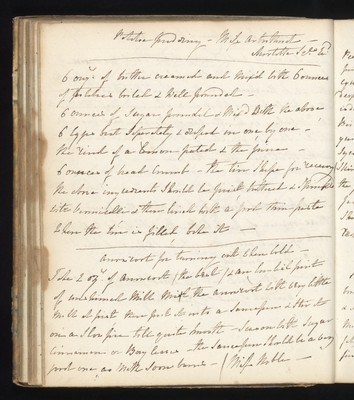 Potatoe pudding - Miss
6 ozs. of butter creamed and mix'd with 6 ounces
of potatoes boiled & well pounded -
6 ounces of sugar pounded & Mix'd With the above
6 eggs beat seperately & dropped in one by one -
the rind of a lemon grated & the juice -
6 ounces of bread crumbs - the tin shape for
the above ingredients should be first buttered &
with vermicelli & then lined with a puff thin paste
When the tin is filled bake it -
arrowroot for turning out when cold -
Take 2 ozs. of arrowroot (the best) & an English pint
of new milk Mix the arrowroot with very little
milk at first then put it into a saucepan & stir it
on a slow fire till quite smooth - season with sugar
cinnamon or Bay leaves - the saucepan should be a very
good one as milk soon burns - (Miss Noble -